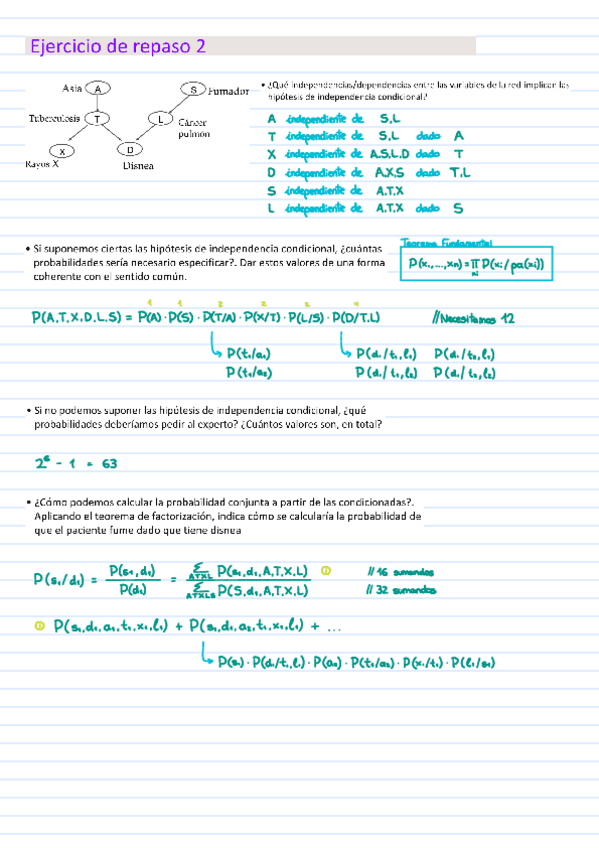 Ejercicio de repaso 2
Asia A
S Fumador
Tuberculosis T
L Cáncer pulmón
X
Rayos X
D
Disnea
• ¿Qué independencias/dependencias entre las variables de la red implican las
hipótesis de independencia condicional?
A independiente de S,L
T independiente de S,L dado A
X independiente de A,S,L,D dado T
D independiente de A,X,S dado T,L
S independiente de A,T,X
L independiente de A,T,X dado S
• Si suponemos ciertas las hipótesis de independencia condicional, ¿cuántas
probabilidades sería necesario especificar?. Dar estos valores de una forma
coherente con el sentido común.
Teorema Fundamental
P(x₁,...,xₙ) = ∏ P(xᵢ/pa(xᵢ))
xᵢ
1 1 2 2 2 4
P(A,T,X,D,L,S) = P(A)·P(S)·P(T/A)·P(X/T)·P(L/S)·P(D/T,L) //Necesitamos 12
P(t₁/a₁) P(d₁/t₁,l₁) P(d₁/t₂,l₁)
P(t₁/a₂) P(d₁/t₁,l₂) P(d₁/t₂,l₂)
• Si no podemos suponer las hipótesis de independencia condicional, ¿qué
probabilidades deberíamos pedir al experto? ¿Cuántos valores son, en total?
2⁶ - 1 = 63
• ¿Cómo podemos calcular la probabilidad conjunta a partir de las condicionadas?.
Aplicando el teorema de factorización, indica cómo se calcularía la probabilidad de
que el paciente fume dado que tiene disnea
P(s₁/d₁) = P(s₁,d₁) / P(d₁) = Σ ATXL P(s₁,d₁,A,T,X,L) ① // 16 sumandos
Σ ATXLS P(S,d₁,A,T,X,L) // 32 sumandos
① P(s₁,d₁,a₁,t₁,x₁,l₁) + P(s₁,d₁,a₂,t₁,x₁,l₁) + ...
P(s₁)·P(d₁/t₁,l₁)·P(a₂)·P(t₁/a₂)·P(x₁/t₁)·P(l₁/s₁)